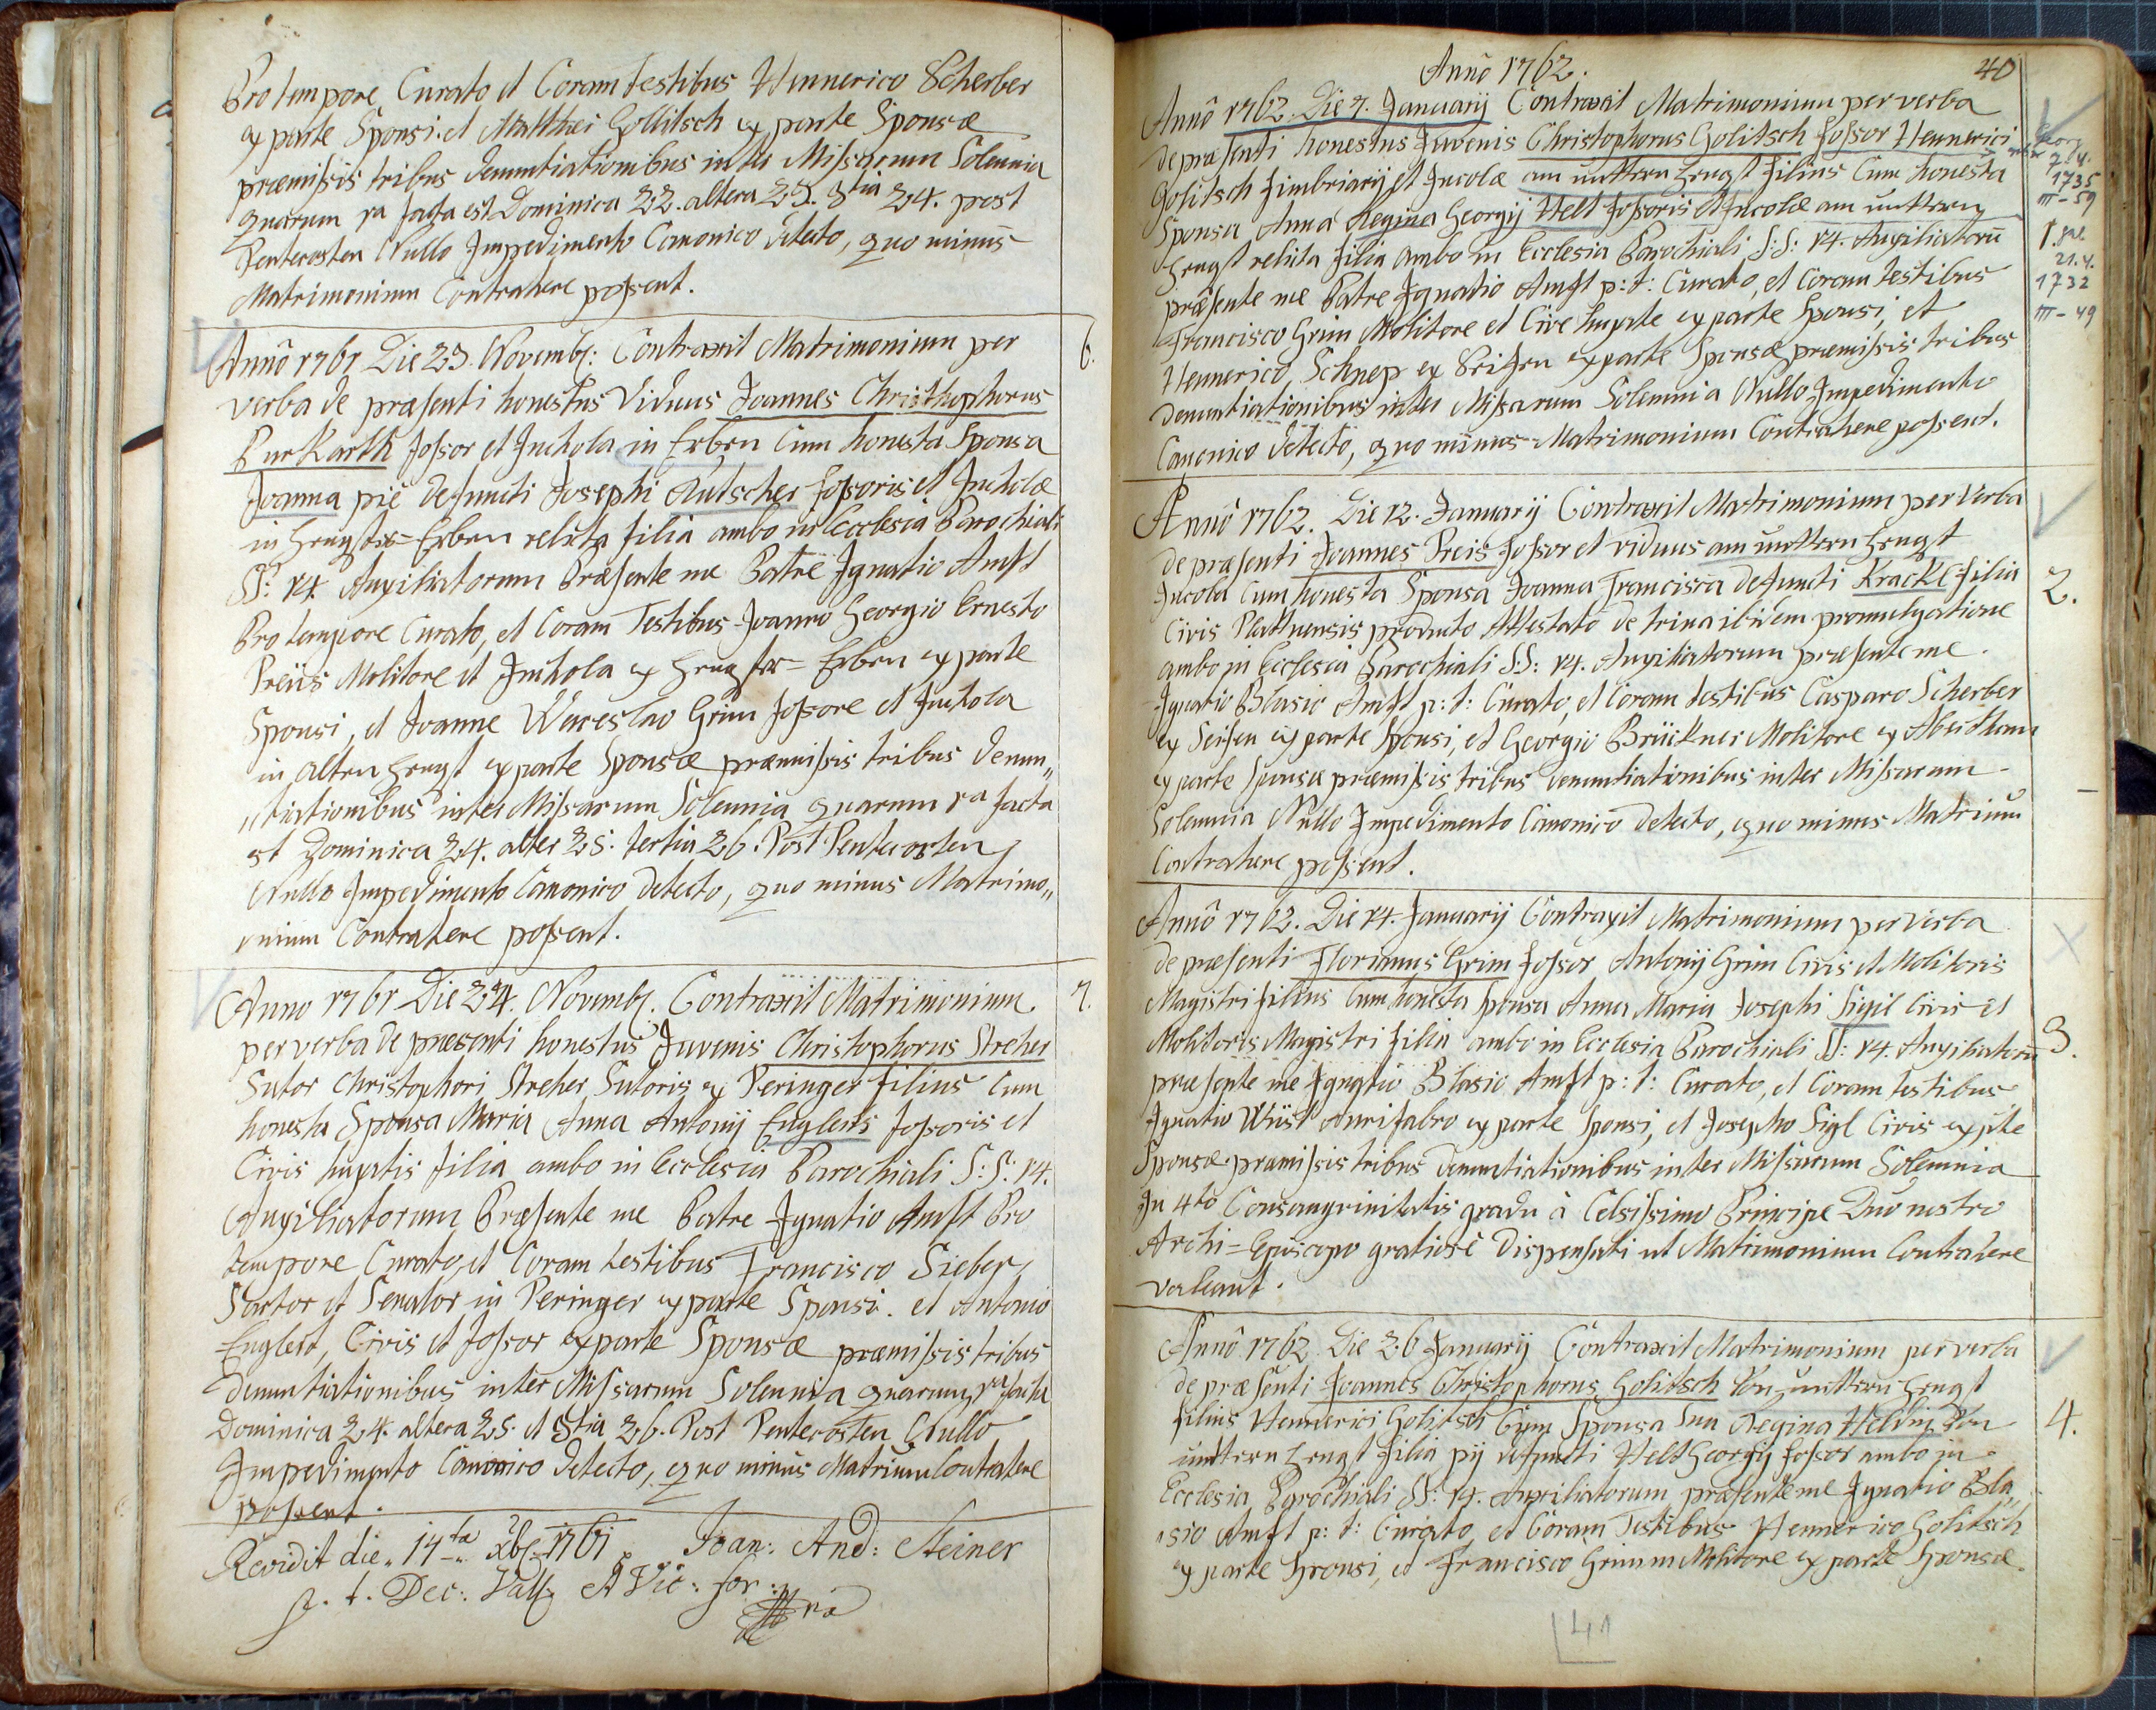 Pro tempore Curato et Coram testibus Hennerico Scherber
ex parte Sponsi. et Matthei Gollitsch ex parte Sponsæ
præmissis tribus denuntiationibus inter Missarum Solennia
quarum 1a facta est Dominica 22. altera 23. 3tia 24. post
Pentecosten Nullo Impedimento Canonico detecto, quo minus
Matrimonium Contrahere possent.
Annô 1761 Die 23. Novemb: Contraxit Matrimonium per
verba de præsenti honestus Viduus Joannes Christhophorus
Burkarth fossor et Inchola in Erben Cum honesta Sponsa
Joanna piè defuncti Josephi Kutscher fossoris et Incholæ
in Hengster=Erben relicta filia ambo in Ecclesia Parochiali
SS: 14 Auxiliatorum Præsente me Patre Ignatio Amft
Pro tempore Curato, et Coram Testibus Joanno Georgio Ernesto
Preiis Molitore et Inchola ex Hengster=Erben ex parte
Sponsi, et Joanne Wenceslao Grim fossore et Inchola
in Alten Hengst ex parte Sponsæ præmissis tribus denun„
„tiationibus inter Missarum Solennia quarum 1a facta
est Dominica 24. alter 25. tertia 26. Post Pentecosten
Nullo Impedimento Canonico detecto, quo minus Matrimo„
nium Contrahere possent.
6.
Anno 1761 Die 24. Novemb. Contraxit Matrimonium
per verba de præsenti honestus Juvenis Christophorus Streher
Sutor Christophori Streher Sutoris ex Peringer filius Cum
honesta Sponsa Maria Anna Antonij Englerts fossoris et
Civis hujatis filia ambo in Ecclesia Parochiali S:S: 14.
Auxiliatorum Præsente me Patre Ignatio Amft Pro
tempore Curato, et Coram testibus Francisco Sieber
Sartor et Senator in Peringer ex parte Sponsi. et Antonio
Englert, Civis et fossor ex parte Sponsæ præmissis tribus
denuntiationibus inter Missarum Solennia quarum 1ra facta
Dominica 24. altera 25. et 3tia 26. Post Pentecosten Nullo
Impedimento Canonico detecto, quo minus Matrium Contrahere
possent.
7.
Revidit die 14ta Xbr 1761 Joan: And: Steiner
p. t. Dec: Vall. et Vic: for:
Annô 1762.
40
Annô 1762. Die 7. Januarij Contraxit Matrimonium per verba
de præsenti honestus Juvenis Christophorus Golitsch fossor Hennerici
Golitsch fimbriarij et Incolæ am unttern Hengst filius Cum honesta
Sponsa Anna Regina Georgij Helt fossoris et Incolæ am unttern
Hengst relicta filia ambo in Ecclesia Parochiali S:S: 14. Auxiliatorū
præsente me Patre Ignatio Amft p: t: Curato, et Coram testibus
Francisco Grim Molitore et Cive hujate ex parte Sponsi, et
Hennerico Schnep ex Seifen ex parte Sponsæ præmissis tribus
denuntiationibus inter Missarum Solennia Nullo Impedimento
Canonico detecto, quo minus Matrimonium Contrahere possent.
7.4.
1735
III-59
1.
21.4.
1732
III-49
Annô 1762. Die 12. Januarij Contraxit Matrimonium per Verba
de præsenti Joannes Preis fossor et viduus am unttern Hengst
Incola Cum honesta Sponsa Joanna Francisca defuncti Krackl filia
Civis Plattnensis producto Attestato de trina ibidem promulgatione
ambo in Ecclesia Parochiali S:S: 14. Auxiliatorum præsente me
Ignatio Blasio Amft p: t: Curato, et Coram testibus Casparo Scherber
ex Seifen ex parte Sponsi, et Georgio Brückner Molitore ex Abertham
ex parte Sponsæ præmissis tribus denuntiationibus inter Missarum
Solennia Nullo Impedimento Canonico detecto, quo minus Matrium
Contrahere possent.
2.
Annô 1762. Die 14. Januarij Contraxit Matrimonium per Verba
de præsenti Florianus Grim fossor Antonij Grim Civis et Molitoris
Magistri filius Cum honesta Sponsa Anna Maria Josephi Sigil Civis et
Molitoris Magistri filia ambo in Ecclesia Parochiali SS: 14. Auxiliatorū
præsente me Ignatio Blasio Amft p: t: Curato, et Coram testibus
Ignatio Wüst Aurifabro ex parte Sponsi, et Josepho Sigl Civis ex pte
Sponsæ præmissis tribus denuntiationibus inter Missarum Solennia
In 4to Consangvinitatis gradu à Celsissimo Principe Dnô nostro
Archi=Episcopo gratiose Dispensati ut Matrimonium Contrahere
valeant.
3.
Annô 1762 Die 26 Januarij Contraxit Matrimonium per verba
de præsenti Joannes Christophorus Golitsch Von unttern Hengst
filius Hennerici Golitsch Cum Sponsa Sua Regina Heldin Von
unttern Hengst filia pij defuncti Helt Georgij fossor ambo in
Ecclesia Parochiali SS: 14. Auxiliatorum præsente me Ignatio Bla„
„sio Amft p: t: Curato, et Coram Testibus Hennerico Golitsch
ex parte Sponsi, et Francisco Grimm Molitore ex parte Sponsæ
4.
41